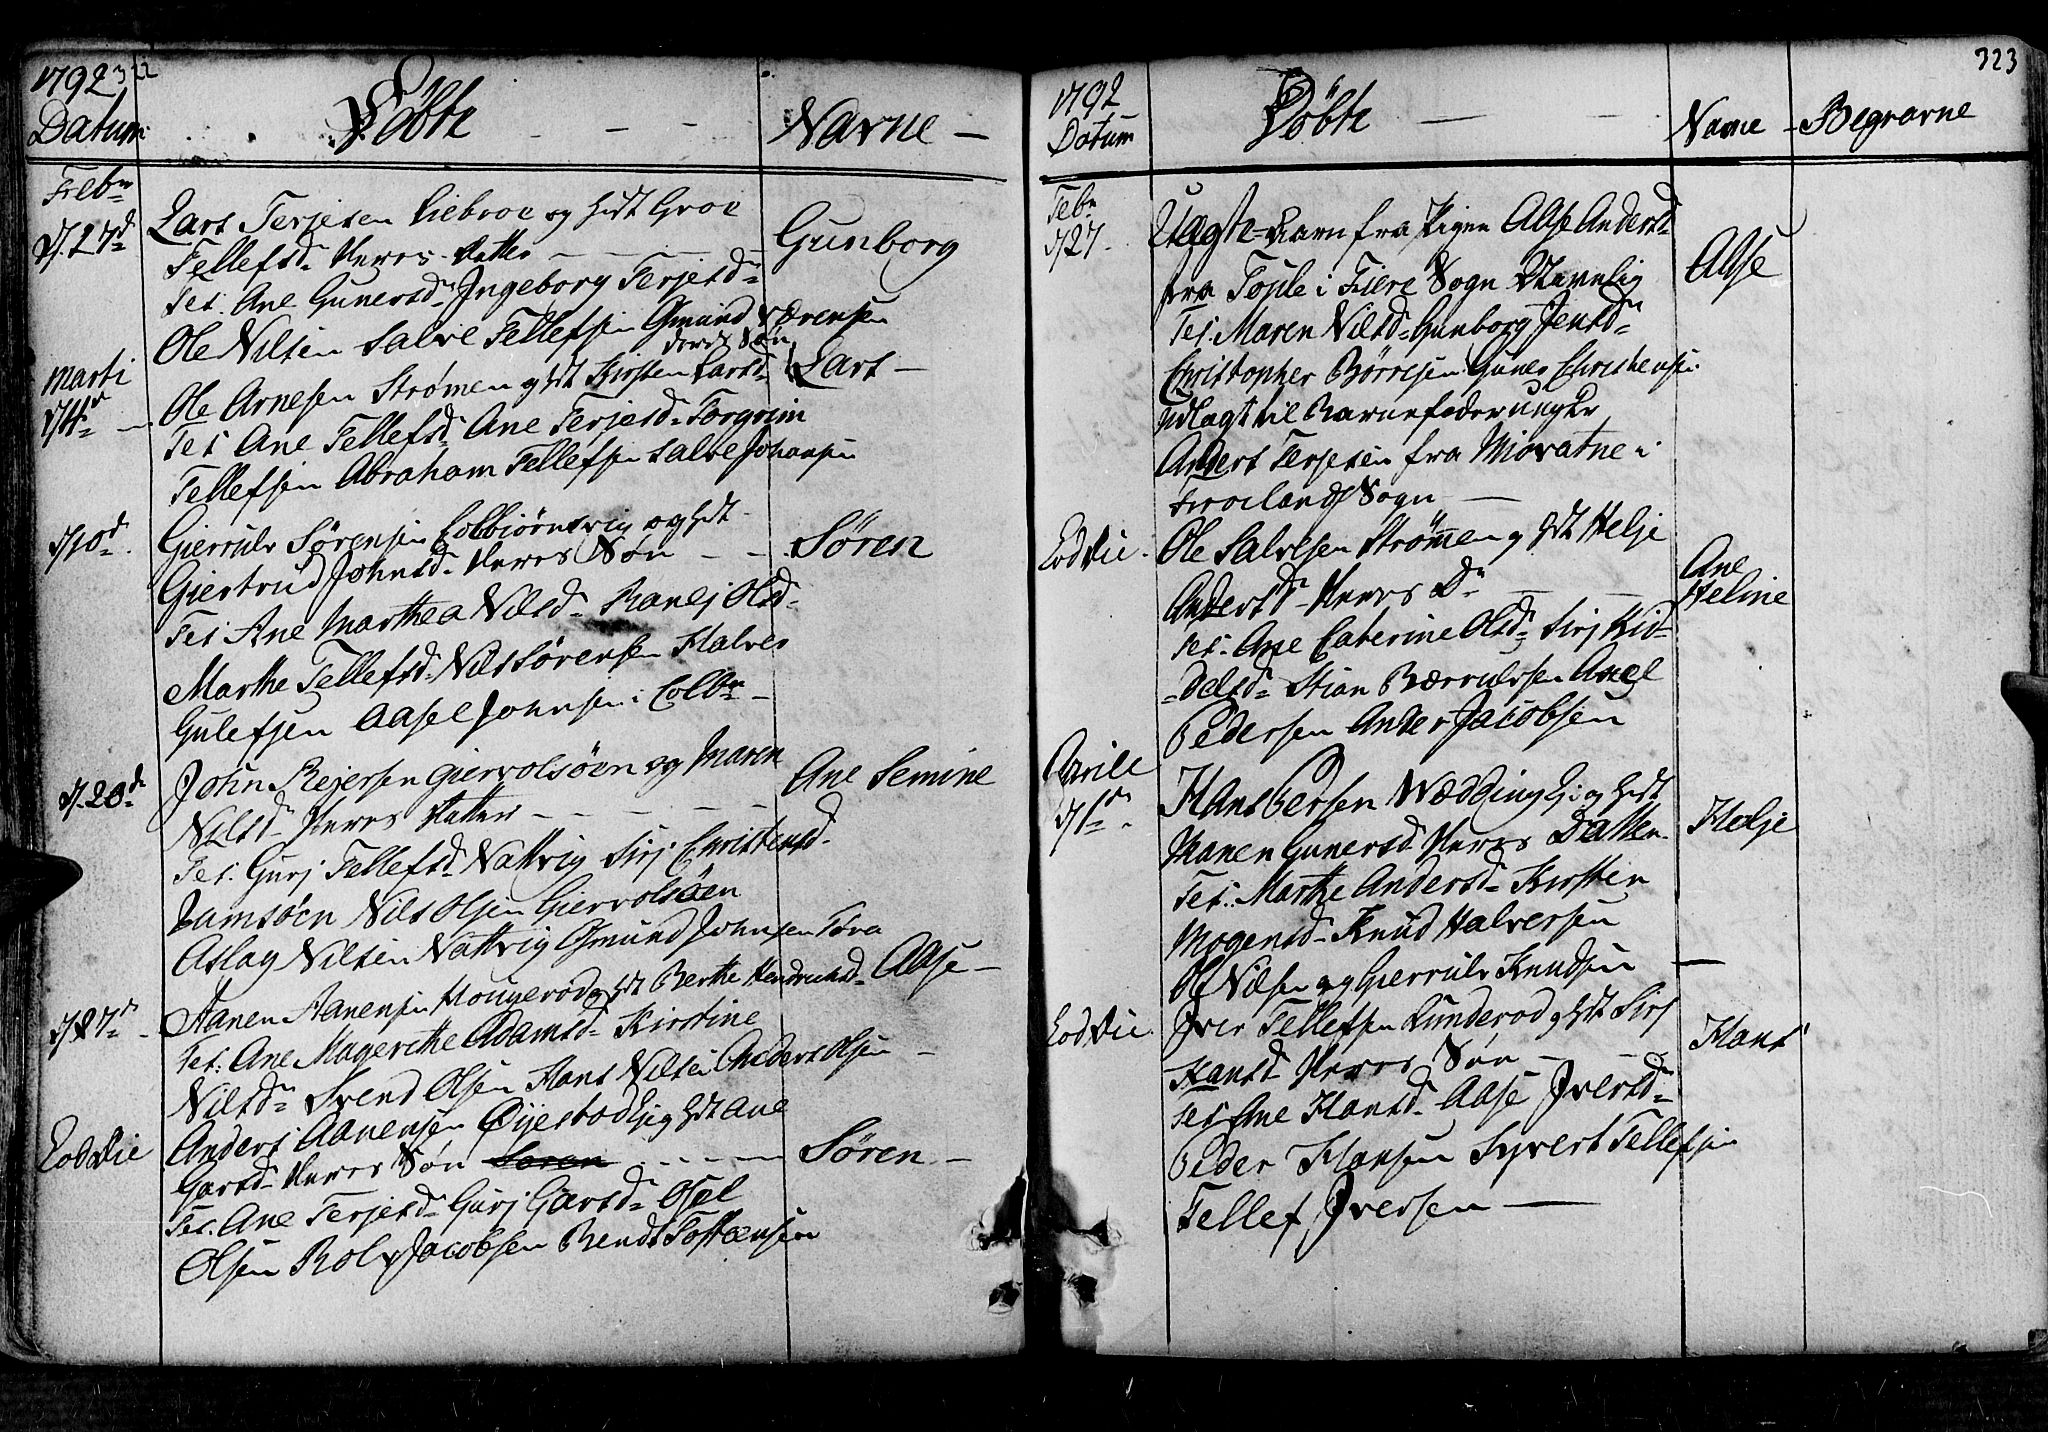 1792 322
Datum Döbte - - - Navne -
Febr
d. 27d Lars Terjesen Liebroe og Hst Groe
Tellefsd Deres Datter - - - Gunborg
Tes: Ane Gunersd Ingeborg Terjesd
Ole Nilsen Salve Tellefsen Gmund Sørensen
deres Søn
Marti
d 4de Ole Arnesen Strømen og Hst Kirsten Larsd Lars -
Tes Ane Tellefsd Ane Terjesd Torgrim
Tellefsen Abraham Tellefsen Salve Johansen
d 10d Gierruls Sörensen Colbiörnsvig og Hst
Giertrud Johnsd Deres Sön - - Sören
Tes: Ane Marthea Nilsd Ranej Olsd
Marthe Tellefsd Nils Sörensen Halvor
Gulefsen Aasel Johnsen i Colbn -
d. 20d John Rejersen Giervolsöen og Maren Ane Semine
Nilsd Deres Datter - - - -
Tes: Gurj Tellefsd Nattvig Sirj Christensd
Tamsöen Nils Olsen Giervolsöen
Aslag Nilsen Nattvig Gmund Johnsen Tora
d 27d Aanen Aanensen Hougerod og Hst Berthe Hendrichsd Aase -
Tes: Ane Magerethe Adamsd Kirstine
Nilsd Svend Olsen Hans Nilsen Anders Olsen -
Eod Die Anders Aanensen Öyestad Ej og Hst Ane
Garsd Deres Sön Soren - - - Sören -
Tes: Ane Terjesd Gurj Garsd Osel
Olsen Rolv Jacobsen Bendt Tostensen
323
1792
Datum Döbte - - Navne - Begravne
Febr
d 27. Uægte Barn fra Pigen Aase Andersd Aase
fra Tosle i Fiere Sogn Navnlig
Tes: Maren Nilsd Gunborg Jensd
Christopher Börresen Guner Christensen
Udlagt til Barnefader ungkr
Anders Terjesen fra Miovatne i
Froelands Sogn -
Eod Die. Ole Salvesen Strömmen og Hst Helje
Andersd Deres Dr - - Ane Heline
Tes: Ane Caterine Olsd Sirj Kid-
-delsd Stian Bærrulsen Anel
Pedersen Ander Jacobsen
Aprile
d 1ste Hans Persen Wædding Ej og Hst Helje
Maren Gunersd Deres Datter
Tes: Marthe Andersd Kirsten
Mogensd Knud Halversen
Ole Nilsen og Gierruls Knudsen -
Eod Die. Iver Tellefsen Lunderod og Hst Sirj Hans
Hansd Deres Sön - -
Tes Ane Hansd Aase Iversd
Peder Hansen Syvert Tellefsen
Tellef Iversen -